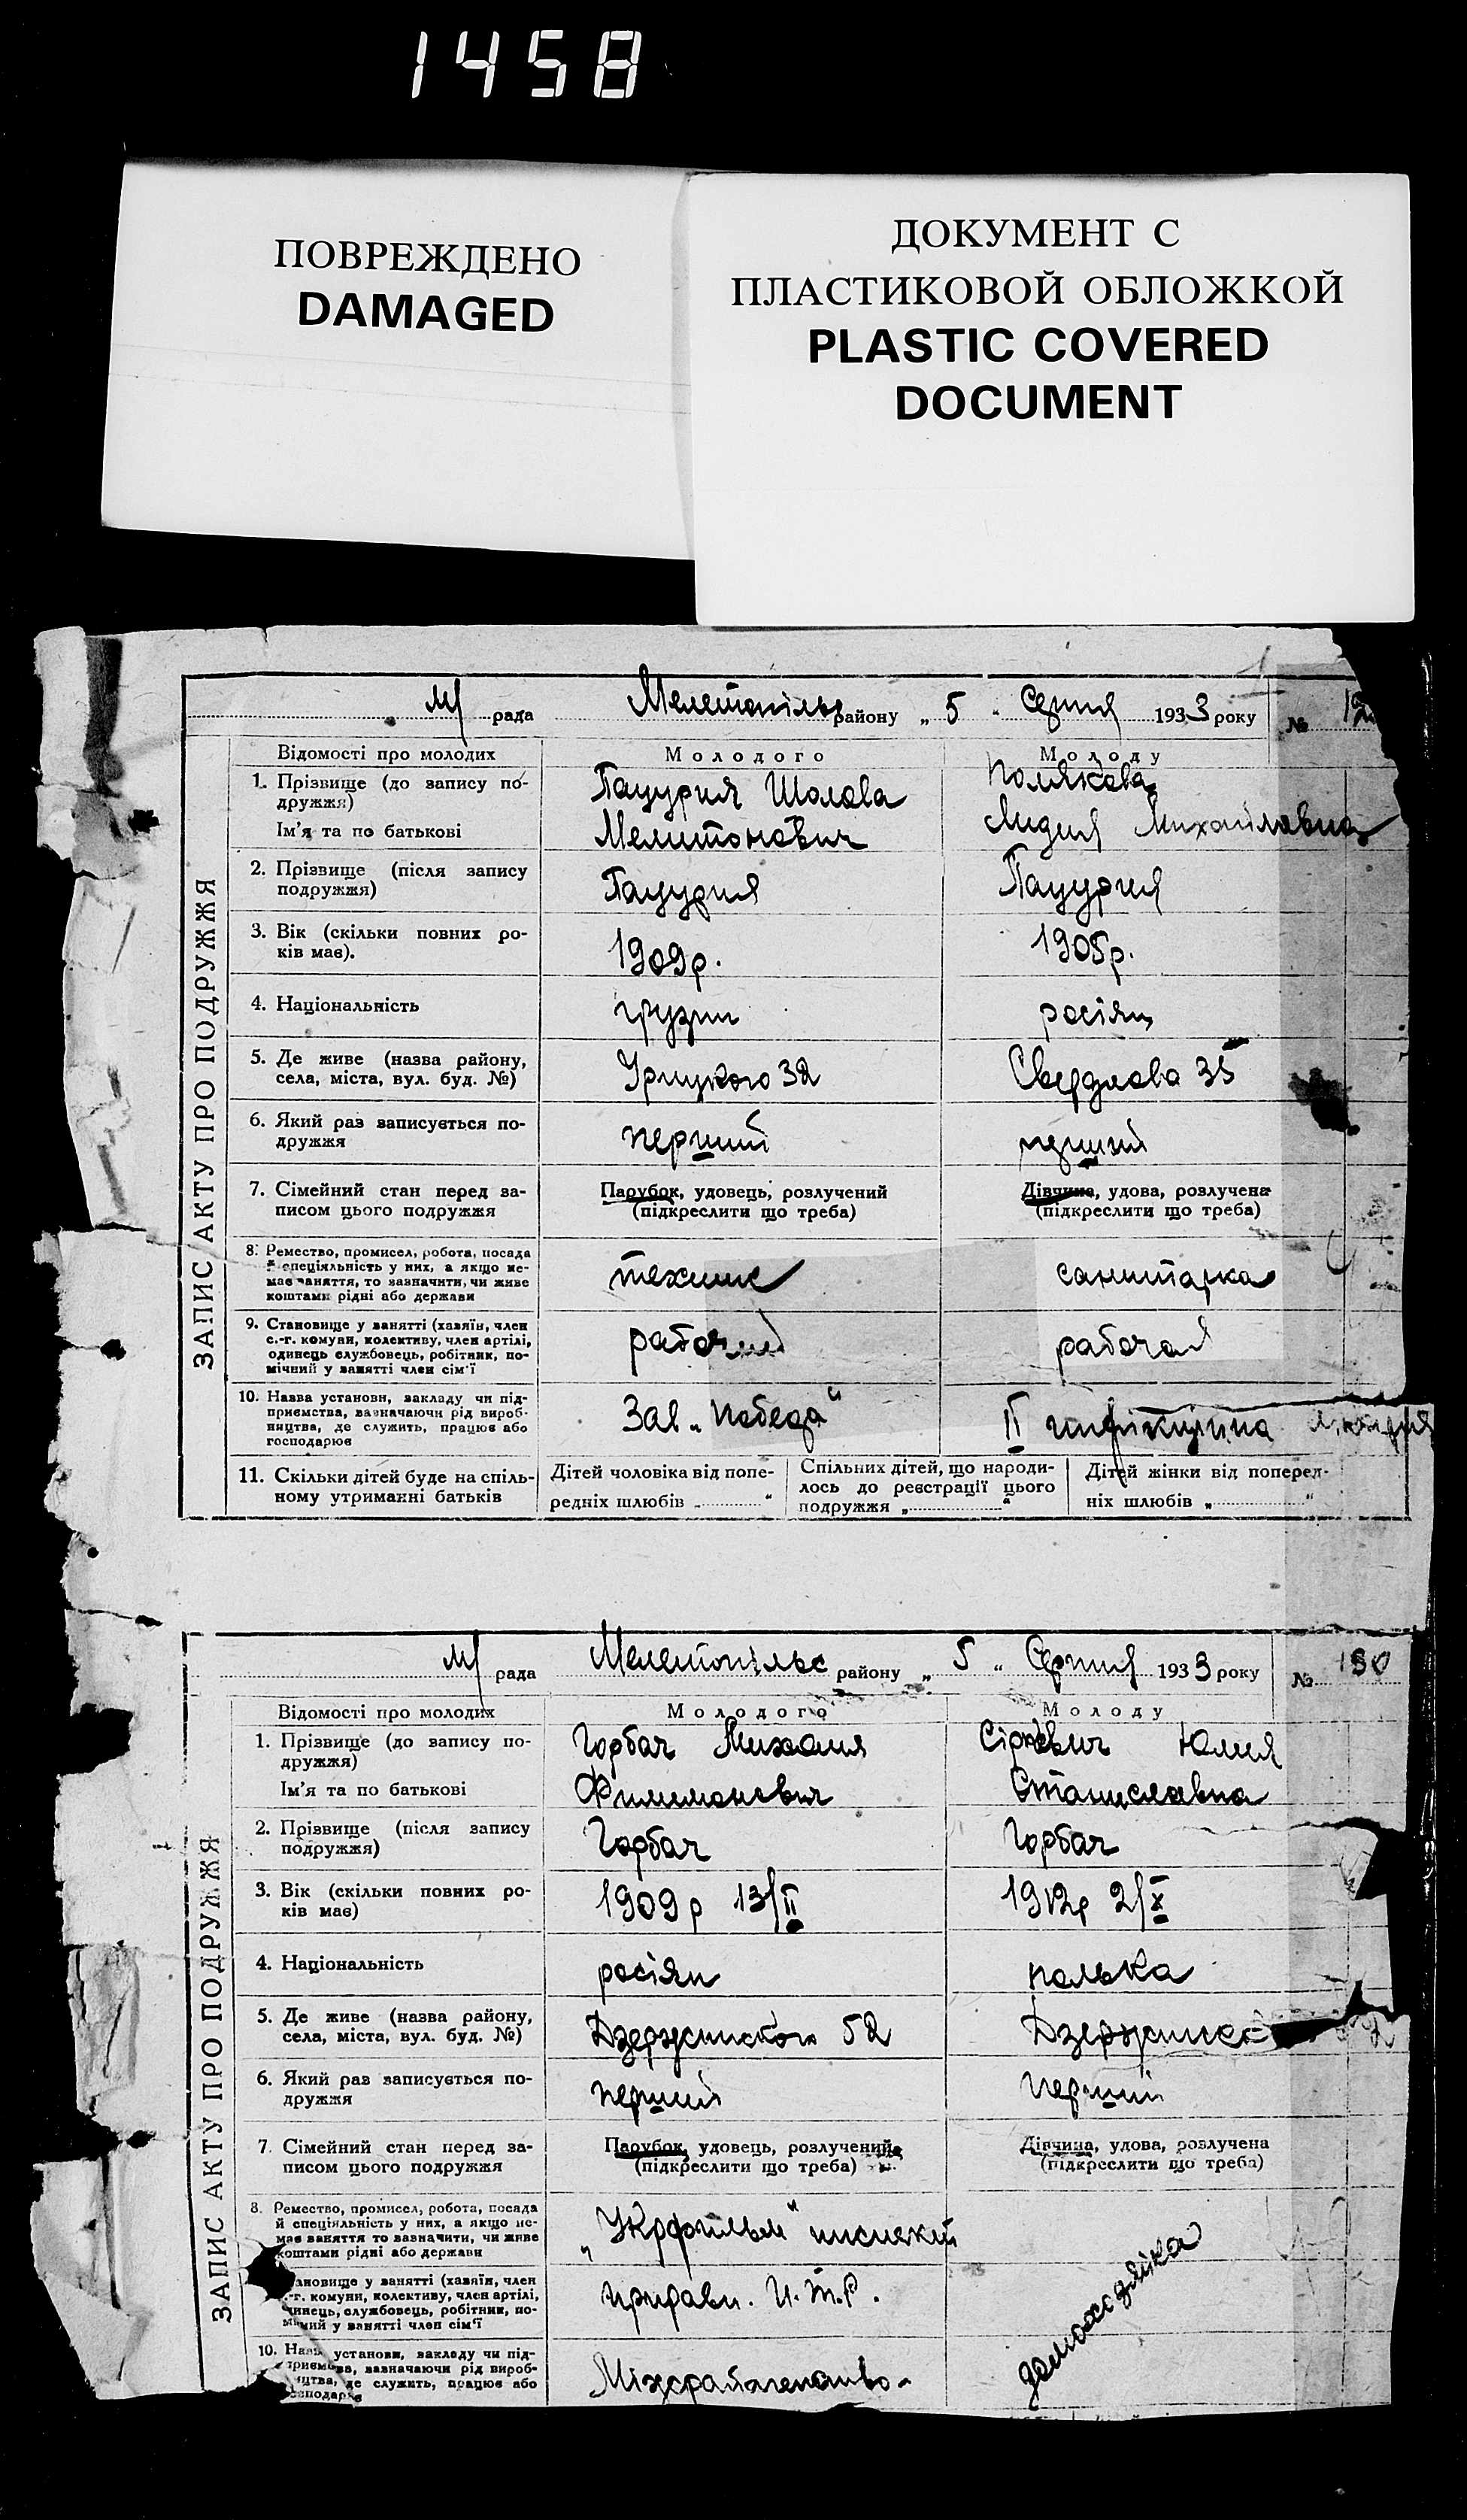 1458
ПОВРЕЖДЕНО
DAMAGED
ДОКУМЕНТ С
ПЛАСТИКОВОЙ ОБЛОЖКОЙ
PLASTIC COVERED
DOCUMENT
ЗАПИС АКТУ ПРО ПОДРУЖЖЯ
м/ рада Мелетопільс району „ 5 " Серпня 1933 року №
Відомості про молодих Молодого Молоду
1. Прізвище (до запису по- Пацурия Шалова Полякова
дружжя)
Ім'я та по батькові Мелитонович Лидия Михайлавна
2. Прізвище (після запису Пацурия Пацурия
подружжя)
3. Вік (скільки повних ро- 1909р. 1905р.
ків має).
4. Національність грузин росіян
5. Де живе (назва району, Урицкого 32 Свердлова 35
села, міста, вул. буд. №)
6. Який раз записується по- перший
дружжя
7. Сімейний стан перед за- Парубок, удовець, розлучений Дівчина, удова, розлучена
писом цього подружжя (підкреслити що треба) (підкреслити що треба)
8. Ремество, промисел, робота, посада
й спеціяльність у них, а якщо не- техник санитарка
має заняття, то зазначити, чи живе
коштами рідні або держави
9. Становище у занятті (хазяїн, член
с.-г. комуни, колективу, член артілі, рабочий рабочая
одинець службовець, робітник, по-
мічний у занятті член сім'ї
10. Назва установи, закладу чи під-
приємства, зазначаючи рід вироб- Зав „Победа" II
ництва, де служить, працює або
господарює
11. Скільки дітей буде на спіль- Дітей чоловіка від попе- Спільних дітей, що народи- Дітей жінки від поперед-
ному утриманні батьків редніх шлюбів „ " лось до реєстрації цього ніх шлюбів „ "
подружжя „ "
ЗАПИС АКТУ ПРО ПОДРУЖЖЯ
м/ рада Мелетопільс району „ 5 " Серпня 1933 року № 130
Відомості про молодих Молодого Молоду
1. Прізвище (до запису по- Горбач Михаил Юлия
дружжя)
Ім'я та по батькові Филимонович Станиславвна
2. Прізвище (після запису Горбач Горбач
подружжя)
3. Вік (скільки повних ро- 1909р 13/II 1912р 2/X
ків має)
4. Національність росіян полька
5. Де живе (назва району, Дзержинского 52 Дзержинс
села, міста, вул. буд. №)
6. Який раз записується по- перший перший
дружжя
7. Сімейний стан перед за- Парубок, удовець, розлучений Дівчина, удова, розлучена
писом цього подружжя (підкреслити що треба) (підкреслити що треба)
8. Ремество, промисел, робота, посада
й спеціяльність у них, а якщо не- „Укрфильм"
має заняття то зазначити, чи живе
коштами рідні або держави
ановище у занятті (хазяїн, член
.-г. комуни, колективу, член артілі, И.Т.Р.
динець, службовець, робітник, по-
мічний у занятті член сім'ї
10. Назва установи, закладу чи під-
приємства, зазначаючи рід вироб-
ництва, де служить, працює або
господарює
домохозяйка